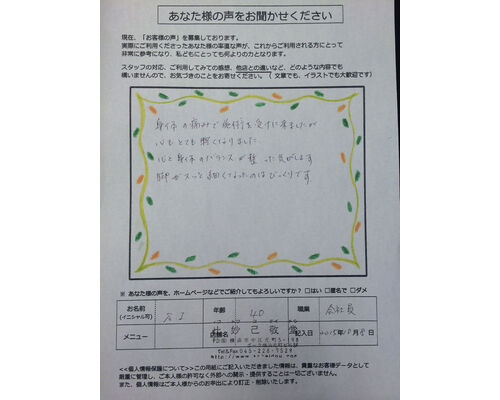 あなた様の声をお聞かせください
現在、「お客様の声」を募集しております。
実際にご利用くださったあなた様の率直な声が、これからご利用される方にとって
非常に参考になり、私どもにとっても何よりの力となります。
スタッフの対応、ご利用してみての感想、他店との違いなど、どのような内容でも
構いませんので、お気づきのことをお寄せください。（ 文章でも、イラストでも大歓迎です）
身体の痛みで施術を受けに来ましたが
心もとても軽くなりました
心と身体のバランスが整った気がします
脚がスーッと細くなったのはびっくりです
※ あなた様の声を、ホームページなどでご紹介してもよろしいですか？ □はい □匿名で □ダメ
お名前
(イニシャル可)
年齢
40
職業
会社員
メニュー
妙己敬堂
横浜市中区元町5-198
記入日
Tel&Fax 045-226-7529
<<個人情報保護について>>この用紙にご記入いただきました情報は、貴重なお客様データとして
厳重に管理し、ご本人様の許可なく外部への開示・提供することは一切ございません。
また、個人情報はご本人様からのお申出により訂正・削除いたします。